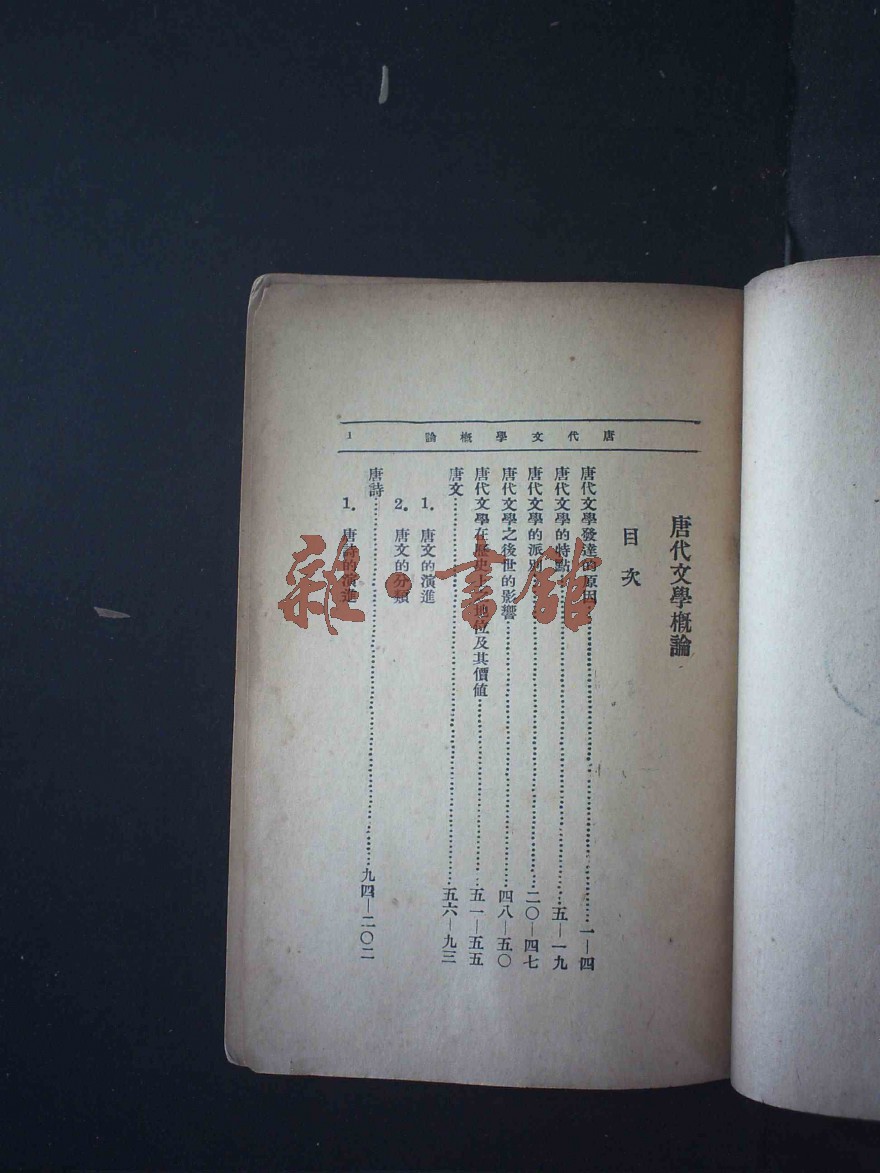 唐代文學概論
1
唐代文學概論
目次
唐代文學發達的原因……一—四
唐代文學的特點……五—一九
唐代文學的派別……二〇—四七
唐代文學之後世的影響……四八—五〇
唐代文學在歷史上地位及其價値……五一—五五
唐文……五六—九三
1. 唐文的演進
2. 唐文的分類
唐詩……九四—二〇二
1. 唐詩的演進
雜·書館